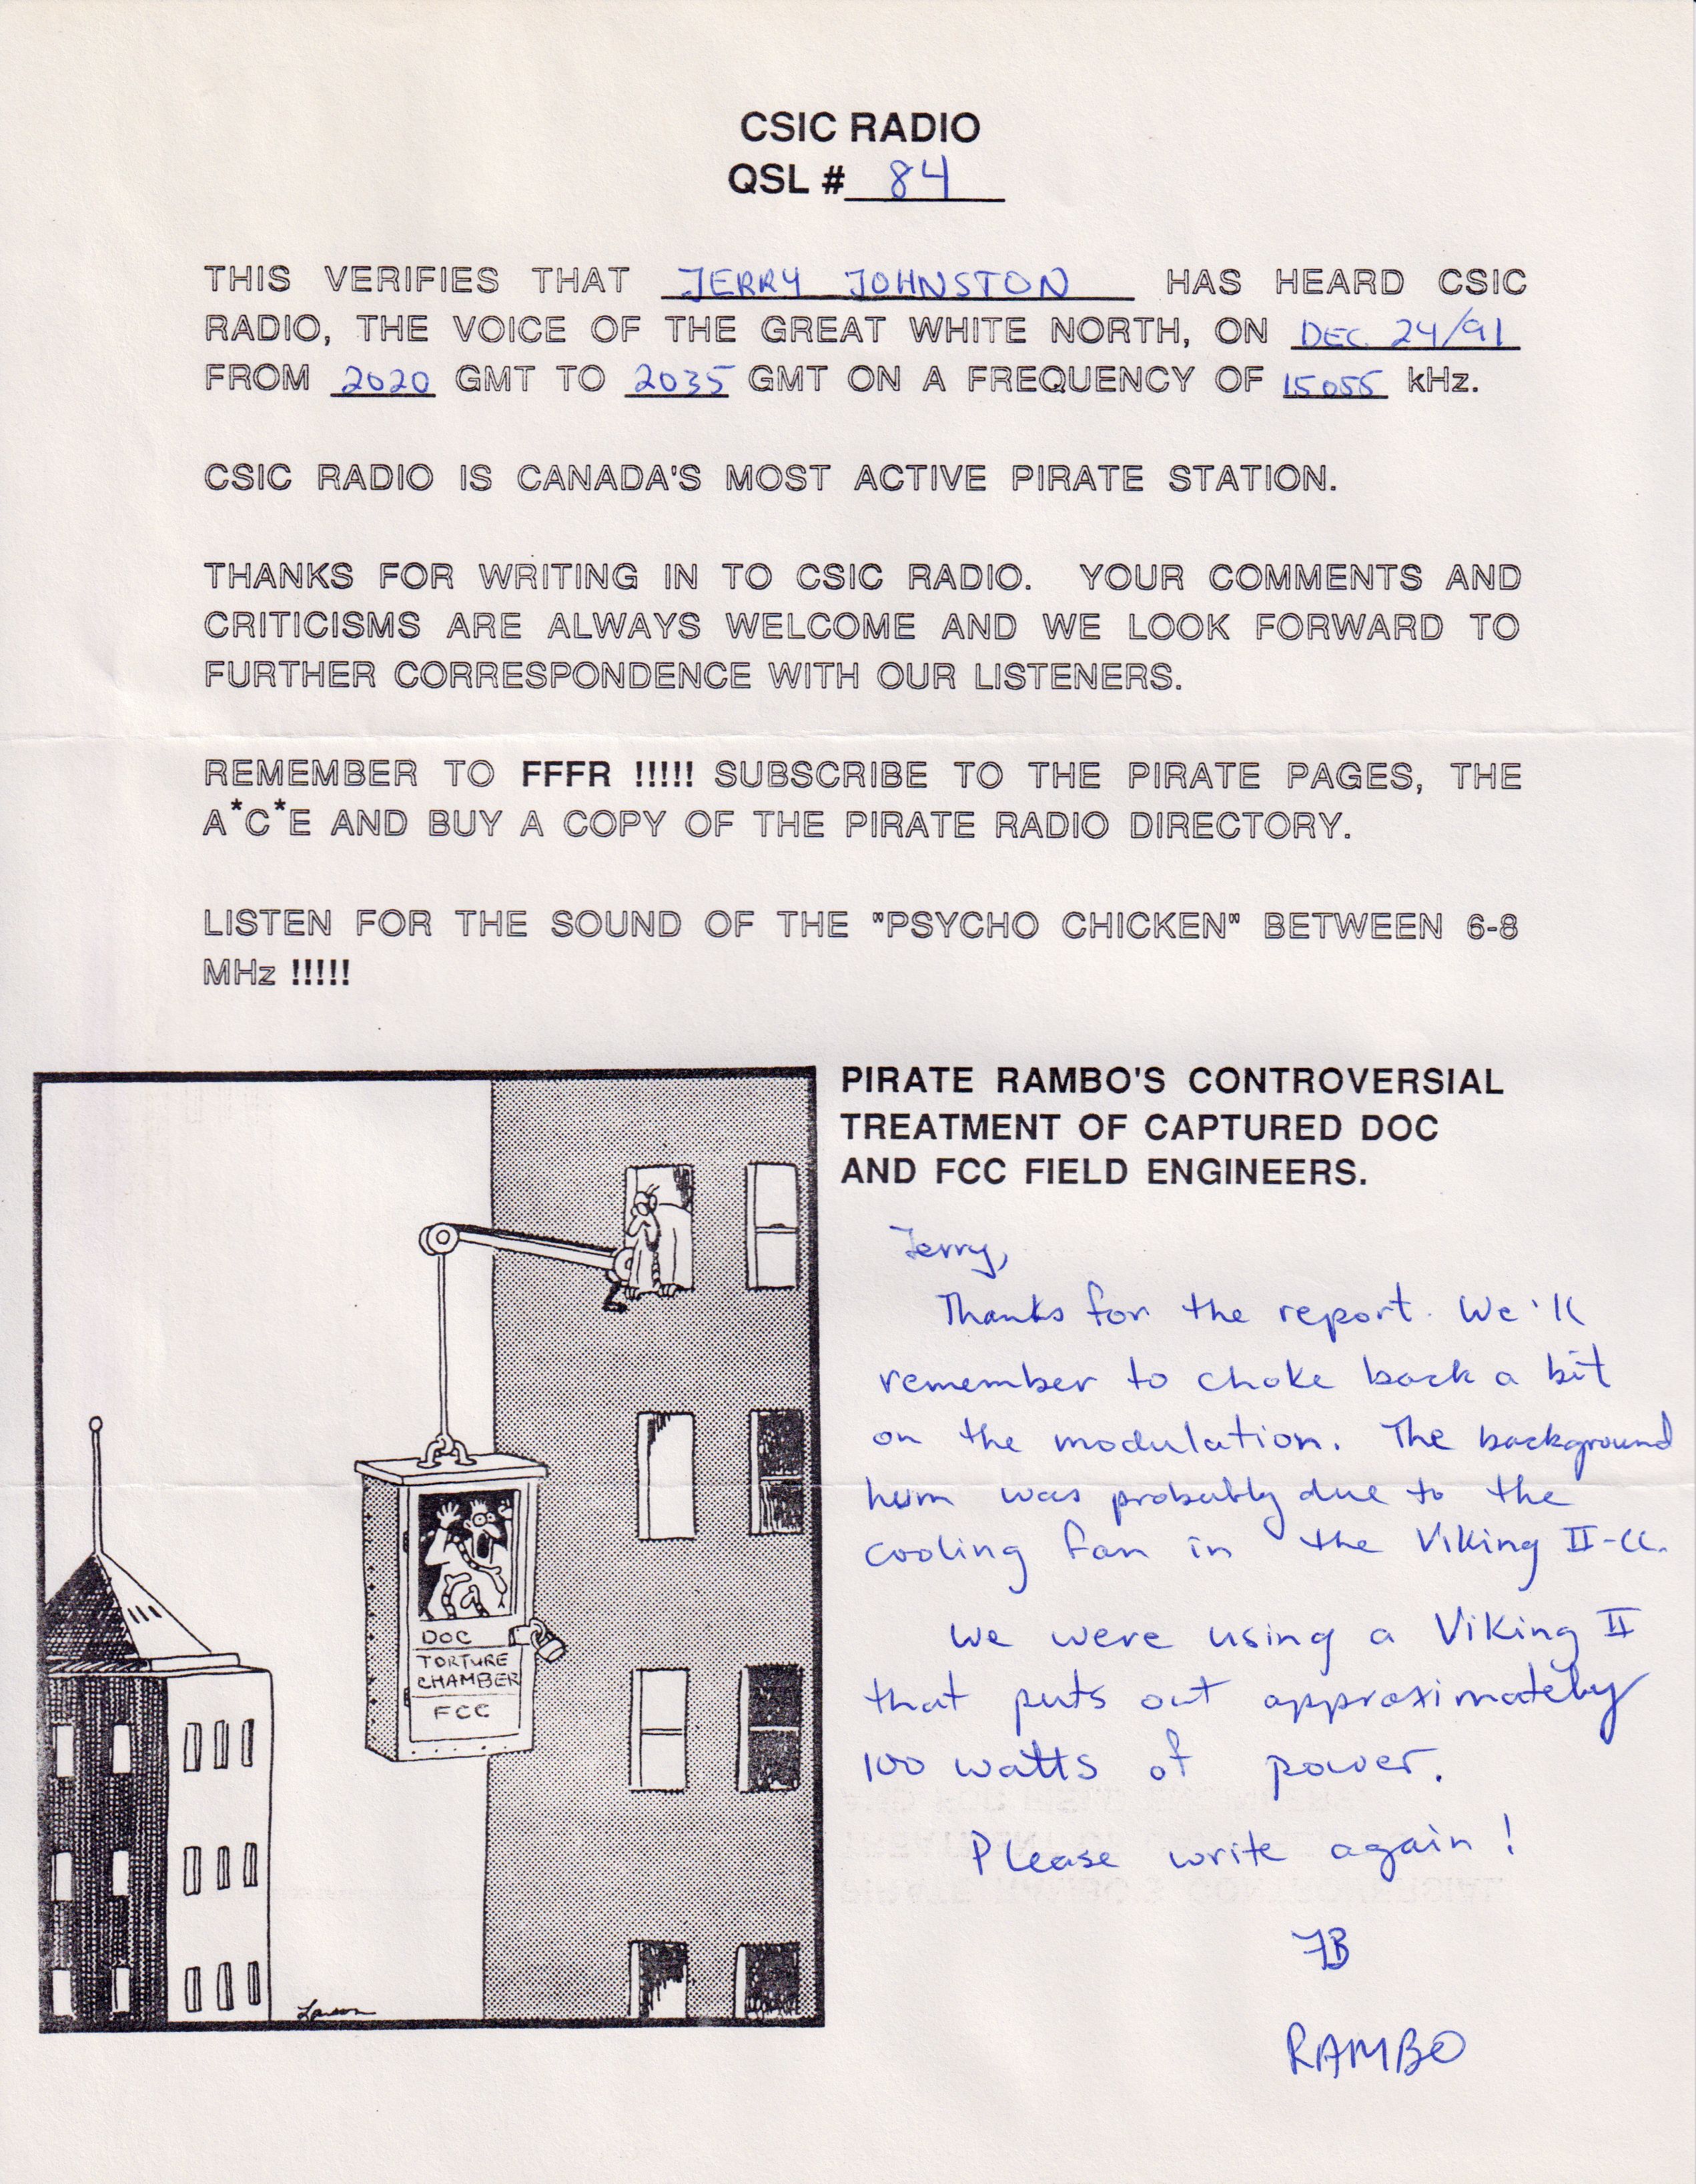 CSIC RADIO
QSL # 84
THIS VERIFIES THAT JERRY JOHNSTON HAS HEARD CSIC
RADIO, THE VOICE OF THE GREAT WHITE NORTH, ON DEC 24/91
FROM 2020 GMT TO 2035 GMT ON A FREQUENCY OF 15055 kHz.
CSIC RADIO IS CANADA'S MOST ACTIVE PIRATE STATION.
THANKS FOR WRITING IN TO CSIC RADIO. YOUR COMMENTS AND
CRITICISMS ARE ALWAYS WELCOME AND WE LOOK FORWARD TO
FURTHER CORRESPONDENCE WITH OUR LISTENERS.
REMEMBER TO FFFR !!!!! SUBSCRIBE TO THE PIRATE PAGES, THE
A*C*E AND BUY A COPY OF THE PIRATE RADIO DIRECTORY.
LISTEN FOR THE SOUND OF THE "PSYCHO CHICKEN" BETWEEN 6-8
MHz !!!!!
PIRATE RAMBO'S CONTROVERSIAL
TREATMENT OF CAPTURED DOC
AND FCC FIELD ENGINEERS.
Jerry,
Thanks for the report. We'll
remember to choke back a bit
on the modulation. The background
hum was probably due to the
cooling fan in the Viking II-CC.
We were using a Viking II
that puts out approximately
100 watts of power.
Please write again!
RAMBO
DOC
TORTURE
CHAMBER
FCC
Larson